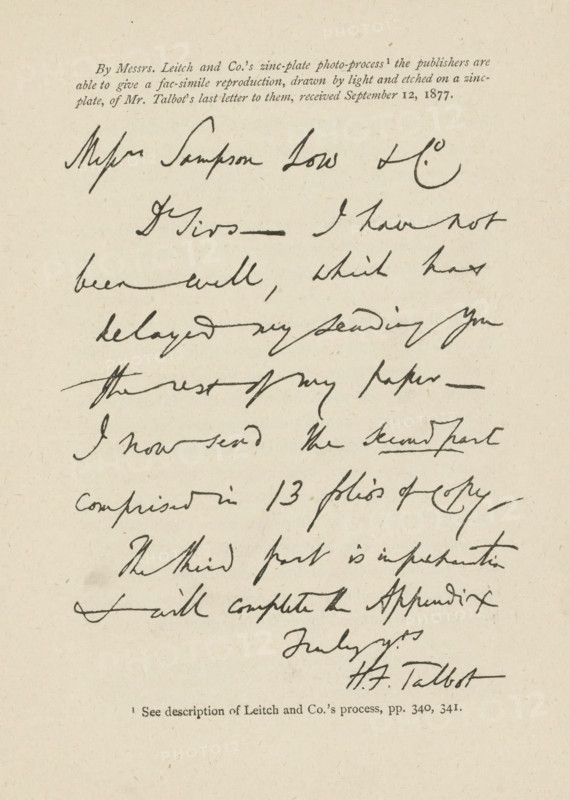 By Messrs. Leitch and Co.'s zinc-plate photo-process¹ the publishers are
able to give a fac-simile reproduction, drawn by light and etched on a zinc-
plate, of Mr. Talbot's last letter to them, received September 12, 1877.
Messrs Sampson Low & Co.
Dr Sirs — I have not
been well, which has
delayed my sending you
the rest of my paper —
I now send the second part
comprised in 13 folios of copy —
The third part is in preparation
& will complete the Appendix
Truly yrs
H. F. Talbot
¹ See description of Leitch and Co.'s process, pp. 340, 341.